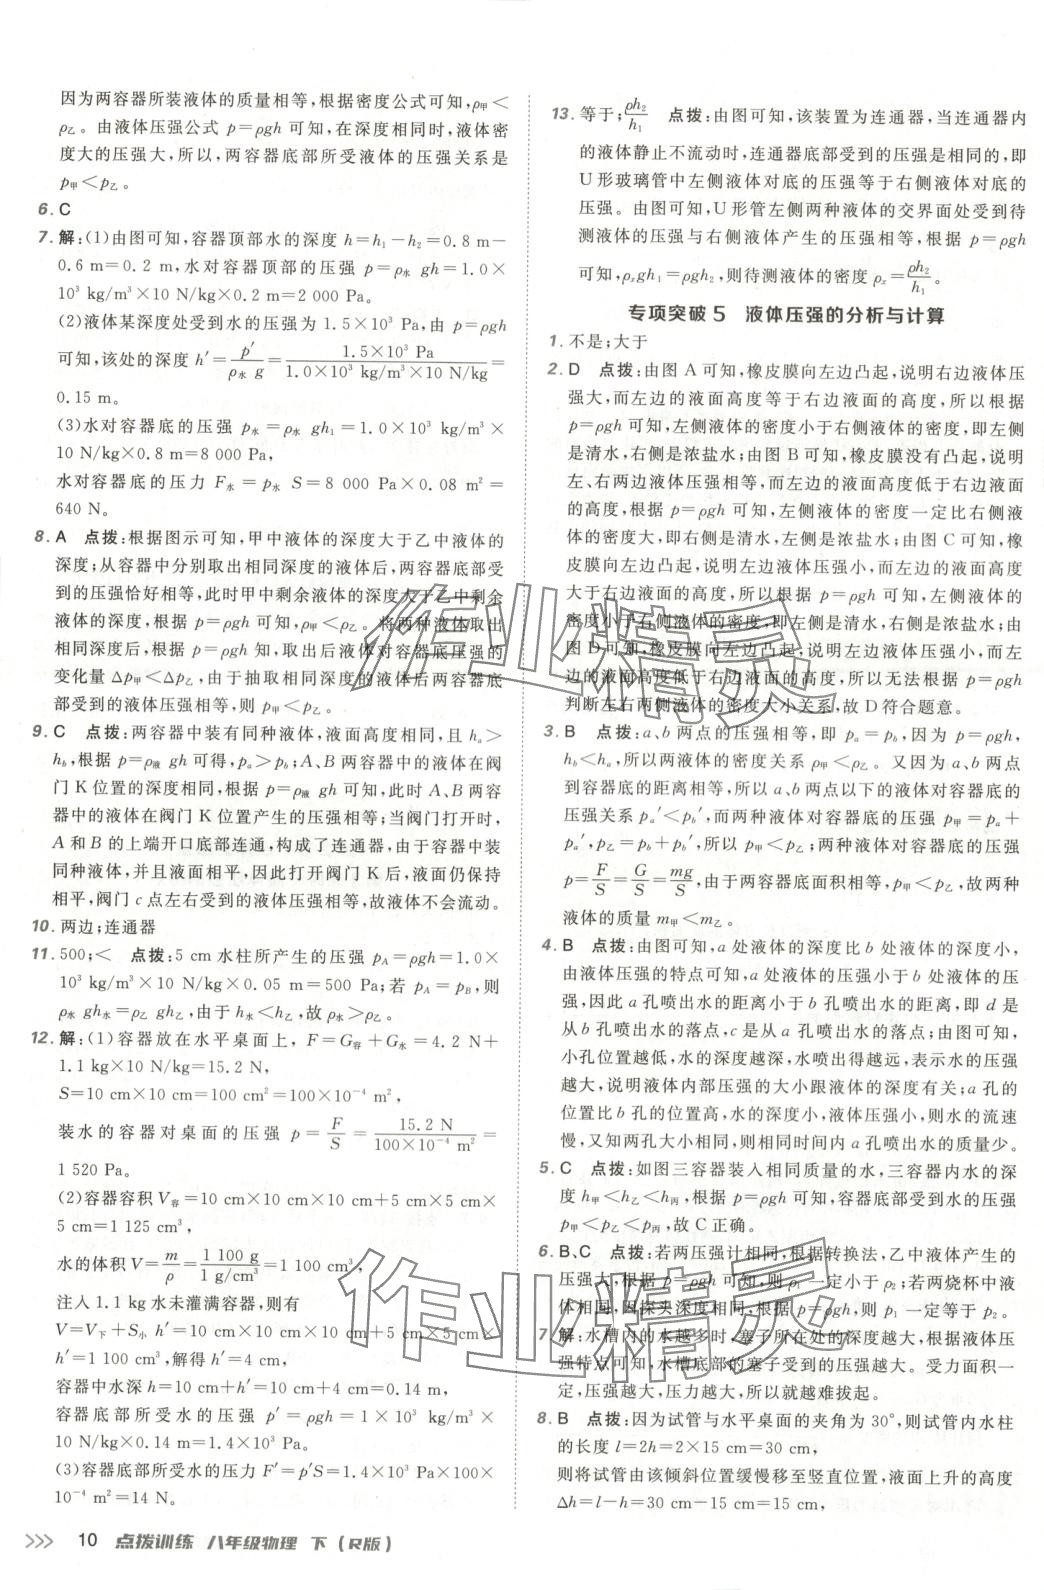 因为两容器所装液体的质量相等，根据密度公式可知，ρ甲＜
ρ乙。由液体压强公式 p＝ρgh 可知，在深度相同时，液体密
度大的压强大，所以，两容器底部所受液体的压强关系是
p甲＜p乙。
6. C
7. 解：(1)由图可知，容器顶部水的深度 h＝h₁－h₂＝0.8 m－
0.6 m＝0.2 m，水对容器顶部的压强 p＝ρ水 gh＝1.0×
10³ kg/m³×10 N/kg×0.2 m＝2 000 Pa。
(2)液体某深度处受到水的压强为 1.5×10³ Pa，由 p＝ρgh
可知，该处的深度 h′＝p′/ρ水 g＝1.5×10³ Pa/1.0×10³ kg/m³×10 N/kg＝
0.15 m。
(3)水对容器底的压强 p水＝ρ水 gh₁＝1.0×10³ kg/m³×
10 N/kg×0.8 m＝8 000 Pa，
水对容器底的压力 F水＝p水 S＝8 000 Pa×0.08 m²＝
640 N。
8. A 点拨：根据图示可知，甲中液体的深度大于乙中液体的
深度；从容器中分别取出相同深度的液体后，两容器底部受
到的压强恰好相等，此时甲中剩余液体的深度大于乙中剩余
液体的深度，根据 p＝ρgh 可知，ρ甲＜ρ乙。将两种液体取出
相同深度后，根据 p＝ρgh 知，取出后液体对容器底压强的
变化量 Δp甲＜Δp乙，由于抽取相同深度的液体后两容器底
部受到的液体压强相等，则 p甲＜p乙。
9. C 点拨：两容器中装有同种液体，液面高度相同，且 hₐ＞
h_b，根据 p＝ρ液 gh 可得，pₐ＞p_b；A、B 两容器中的液体在阀
门 K 处的深度相同，根据 p＝ρ液 gh 可知，此时 A、B 两容
器中的液体在阀门 K 位置产生的压强相等；当阀门打开时，
A 和 B 的上端开口底部连通，构成了连通器，由于容器中装
同种液体，并且液面相平，因此打开阀门 K 后，液面仍保持
相平，阀门 c 点左右受到的液体压强相等，故液体不会流动。
10. 两边；连通器
11. 500；＜ 点拨：5 cm 水柱所产生的压强 p_A＝ρgh＝1.0×
10³ kg/m³×10 N/kg×0.05 m＝500 Pa；若 p_A＝p_B，则
ρ水 gh水＝ρ乙 gh乙，由于 h水＜h乙，故 ρ水＞ρ乙。
12. 解：(1)容器放在水平桌面上，F＝G容＋G水＝4.2 N＋
1.1 kg×10 N/kg＝15.2 N，
S＝10 cm×10 cm＝100 cm²＝100×10⁻⁴ m²，
装水的容器对桌面的压强 p＝F/S＝15.2 N/100×10⁻⁴ m²＝
1 520 Pa。
(2)容器容积 V容＝10 cm×10 cm×10 cm＋5 cm×5 cm×
5 cm＝1 125 cm³，
水的体积 V＝m/ρ＝1 100 g/1 g/cm³＝1 100 cm³，
注入 1.1 kg 水未灌满容器，则有
V＝V下＋S小 h′＝10 cm×10 cm×10 cm＋5 cm×5 cm×
h′＝1 100 cm³，解得 h′＝4 cm，
容器中水深 h＝10 cm＋h′＝10 cm＋4 cm＝0.14 m，
容器底部所受水的压强 p′＝ρgh＝1×10³ kg/m³×
10 N/kg×0.14 m＝1.4×10³ Pa。
(3)容器底部所受水的压力 F′＝p′S＝1.4×10³ Pa×100×
10⁻⁴ m²＝14 N。
13. 等于；ρh₂/h₁ 点拨：由图可知，该装置为连通器，当连通器内
的液体静止不流动时，连通器底部受到的压强是相同的，即
U 形玻璃管中左侧液体对底的压强等于右侧液体对底的
压强。由图可知，U 形管左侧两种液体的交界面处受到待
测液体的压强与右侧液体产生的压强相等，根据 p＝ρgh
可知，ρₓgh₁＝ρgh₂，则待测液体的密度 ρₓ＝ρh₂/h₁。
专项突破 5 液体压强的分析与计算
1. 不是；大于
2. D 点拨：由图 A 可知，橡皮膜向左边凸起，说明右边液体压
强大，而左边的液面高度等于右边液面的高度，所以根据
p＝ρgh 可知，左侧液体的密度小于右侧液体的密度，即左侧
是清水，右侧是浓盐水；由图 B 可知，橡皮膜没有凸起，说明
左、右两边液体压强相等，而左边的液面高度低于右边液面
的高度，根据 p＝ρgh 可知，左侧液体的密度一定比右侧液
体的密度大，即右侧是清水，左侧是浓盐水；由图 C 可知，橡
皮膜向左边凸起，说明右边液体压强大，而左边的液面高度
大于右边液面的高度，所以根据 p＝ρgh 可知，左侧液体的
密度小于右侧液体的密度，即左侧是清水，右侧是浓盐水；由
图 D 可知，橡皮膜向左边凸起，说明右边液体压强大，而左
边的液面高度低于右边液面的高度，所以无法根据 p＝ρgh
判断左右两侧液体的密度大小关系，故 D 符合题意。
3. B 点拨：a、b 两点的压强相等，即 pₐ＝p_b，因为 p＝ρgh，
h_b＜hₐ，所以两液体的密度关系 ρ甲＜ρ乙。又因为 a、b 两点
到容器底的距离相等，所以 a、b 两点以下的液体对容器底的
压强关系 pₐ′＜p_b′，而两种液体对容器底的压强 p甲＝pₐ＋
pₐ′，p乙＝p_b＋p_b′，所以 p甲＜p乙；两种液体对容器底的压强
p＝F/S＝G/S＝mg/S，由于两容器底面积相等，p甲＜p乙，故两种
液体的质量 m甲＜m乙。
4. B 点拨：由图可知，a 处液体的深度比 b 处液体的深度小，
由液体压强的特点可知，a 处液体的压强小于 b 处液体的压
强，因此 a 孔喷出水的距离小于 b 孔喷出水的距离，即 d 是
从 b 孔喷出水的落点，c 是从 a 孔喷出水的落点；由图可知，
小孔位置越低，水的深度越深，水喷出得越远，表示水的压强
越大，说明液体内部压强的大小跟液体的深度有关；a 孔的
位置比 b 孔的位置高，水的深度小，液体压强小，则水的流速
慢，又知两孔大小相同，则相同时间内 a 孔喷出水的质量少。
5. C 点拨：如图三容器装入相同质量的水，三容器内水的深
度 h甲＜h乙＜h丙，根据 p＝ρgh 可知，容器底部受到水的压强
p甲＜p乙＜p丙，故 C 正确。
6. B、C 点拨：若两压强计相同，根据转换法，乙中液体产生的
压强大，因探头深度相同，根据 p＝ρgh 可知，则 ρ₁ 一定小于 ρ₂；若两烧杯中液
体相同，因探头深度相同，根据 p＝ρgh，则 p₁ 一定等于 p₂。
7. 解：水槽内的水越多时，塞子所在处的深度越大，根据液体压
强特点可知，水槽底部的塞子受到的压强越大。受力面积一
定，压强越大，压力越大，所以就越难拔起。
8. B 点拨：因为试管与水平桌面的夹角为 30°，则试管内水柱
的长度 l＝2h＝2×15 cm＝30 cm，
则将试管由该倾斜位置缓慢移至竖直位置，液面上升的高度
Δh＝l－h＝30 cm－15 cm＝15 cm，
10 点拨训练 八年级物理 下（R版）
作业精灵
作业精灵